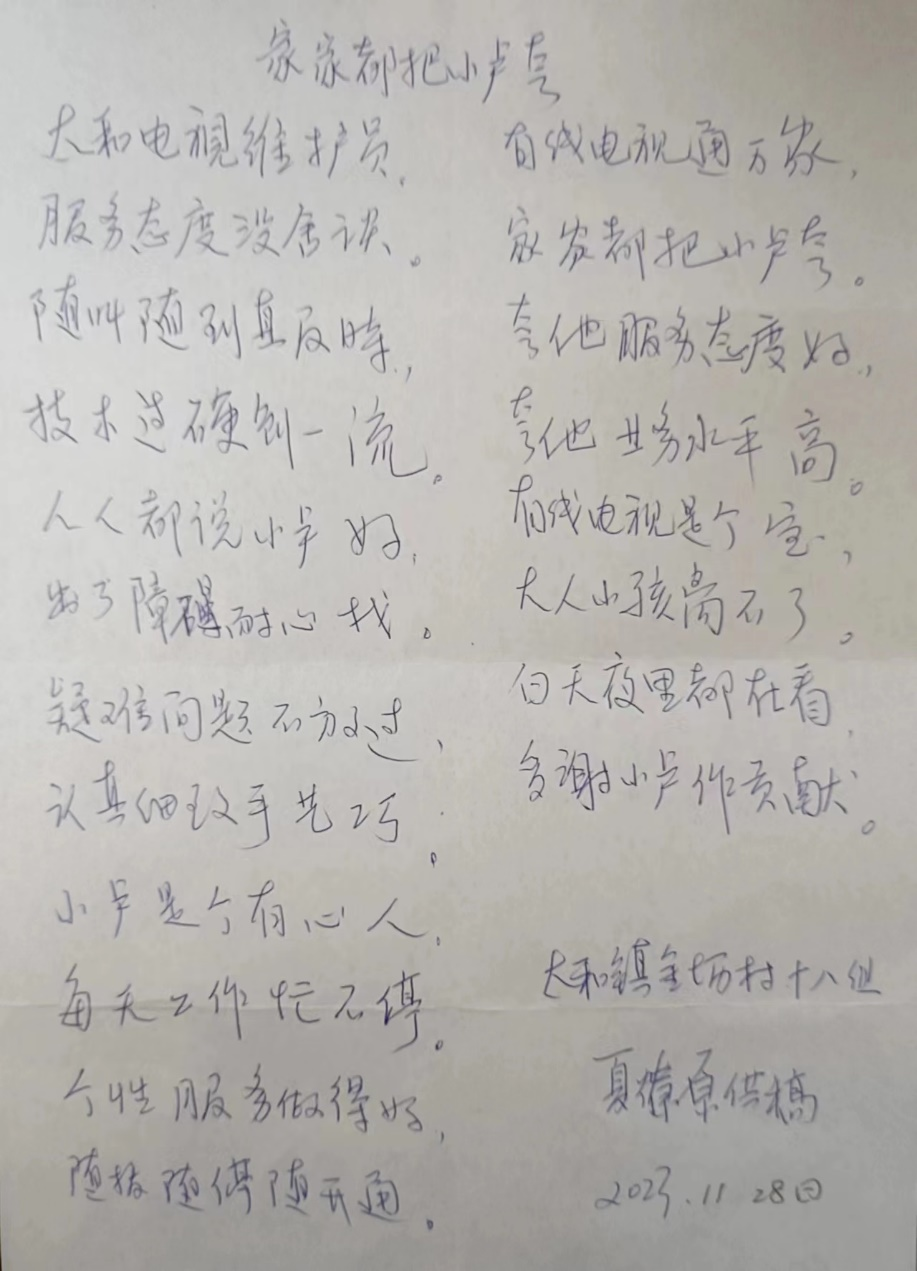 家家都把小卢夸
太和电视维护员,
服务态度没啥谈。
随叫随到真及时,
技术过硬创一流。
人人都说小卢好,
出了障碍耐心找。
疑难问题不放过,
认真细致手艺巧。
小卢是个有心人,
每天工作忙不停。
个性服务做得好,
随接随停随开通。
有线电视通万家,
家家都把小卢夸。
夸他服务态度好,
夸他业务水平高。
有线电视是个宝,
大人小孩离不了。
白天夜里都在看,
多谢小卢作贡献。
太和镇金坊村十八组
夏燎原供稿
2023.11 28日